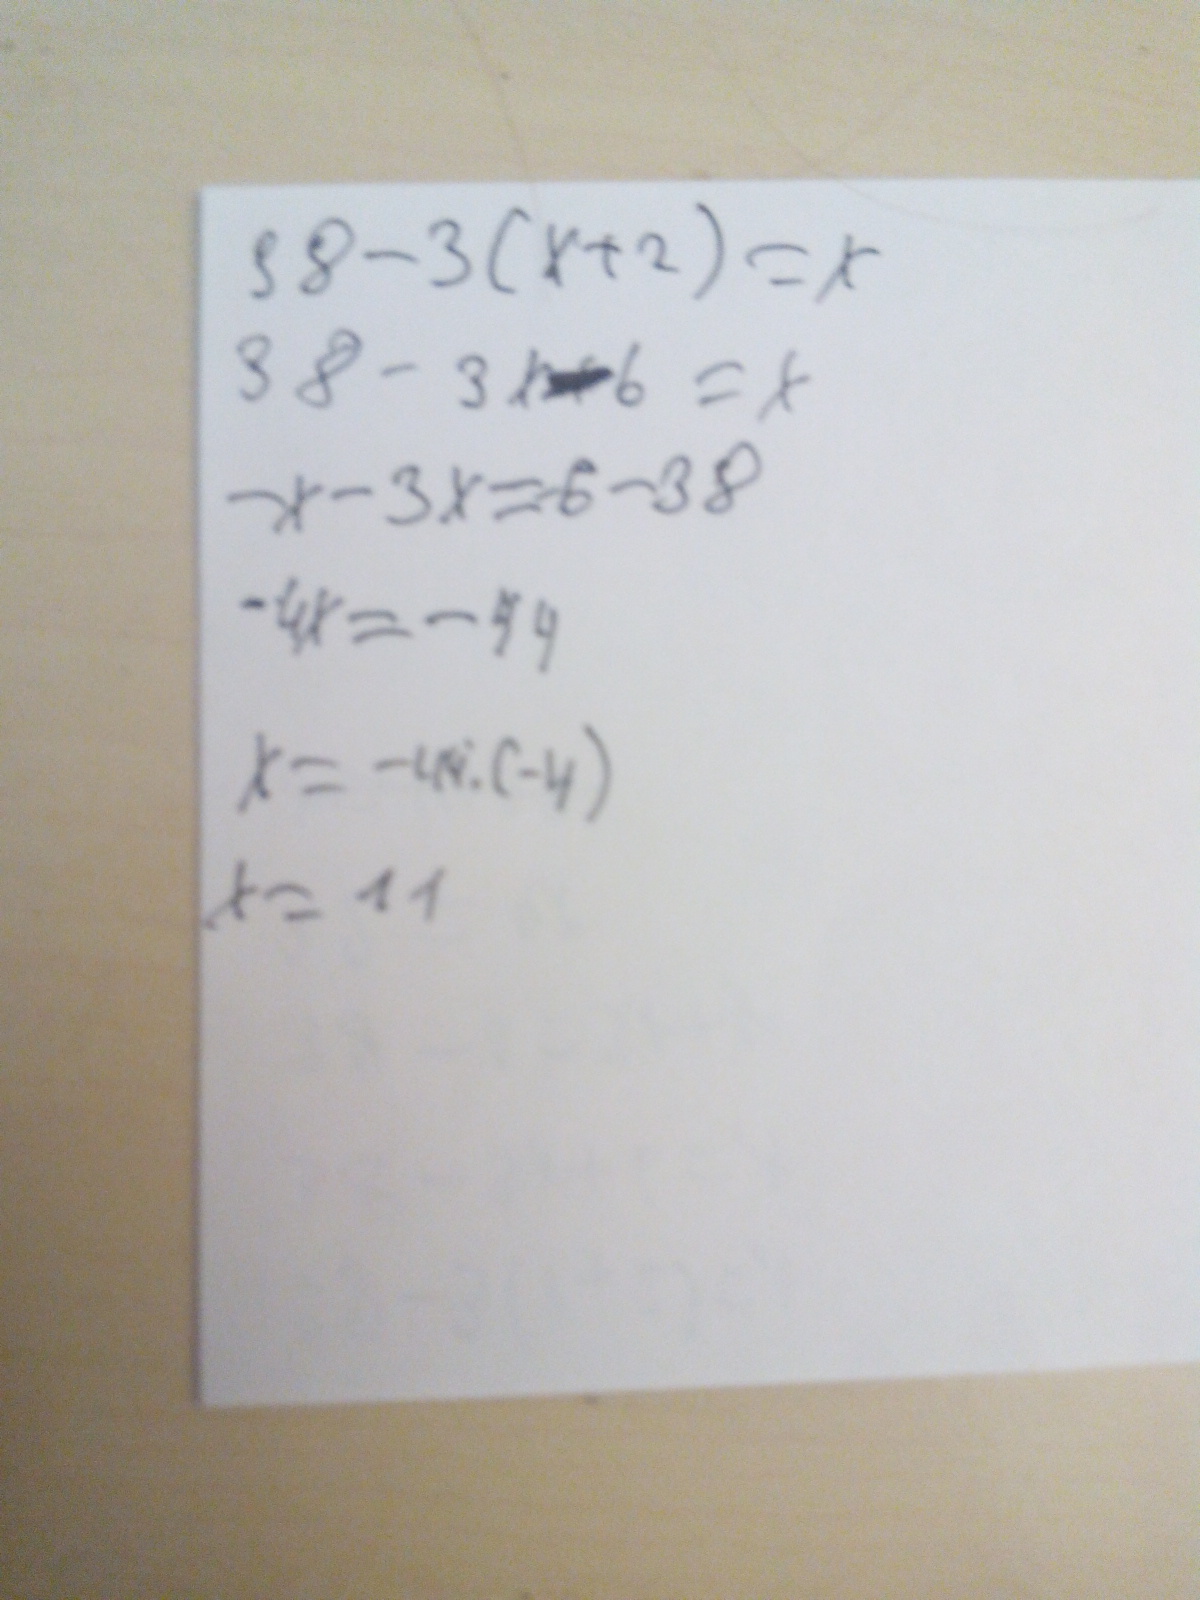 38-3(x+2)=x
38-3x-6=x
-x-3x=-6-38
-4x=-44
x=-44:(-4)
x=11